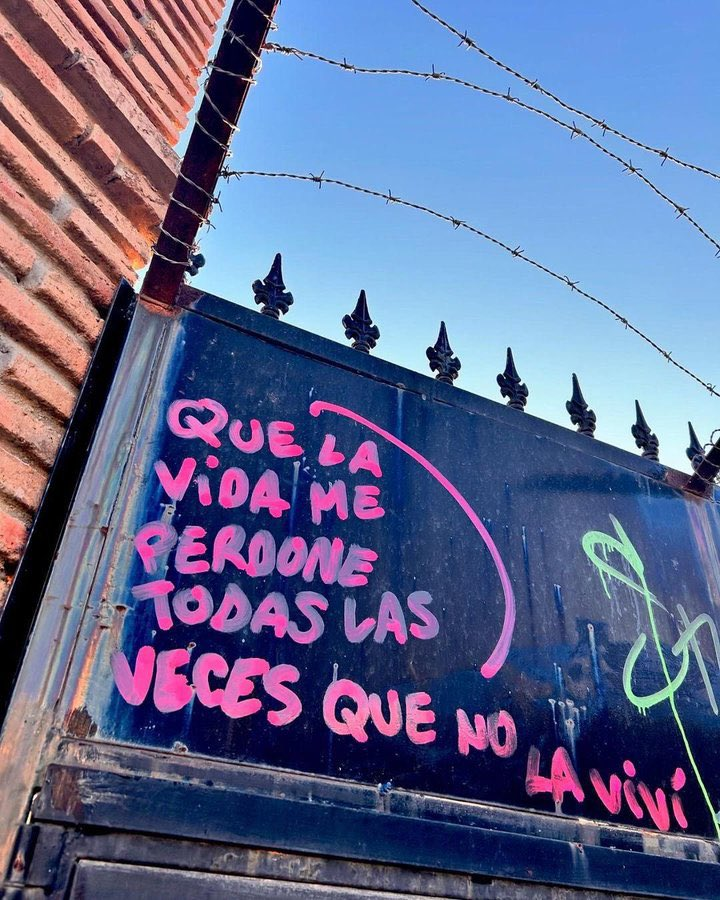 QUE LA
ViDA ME
PERDONE
TODAS LAS
VECES QUE NO
LA ViVi